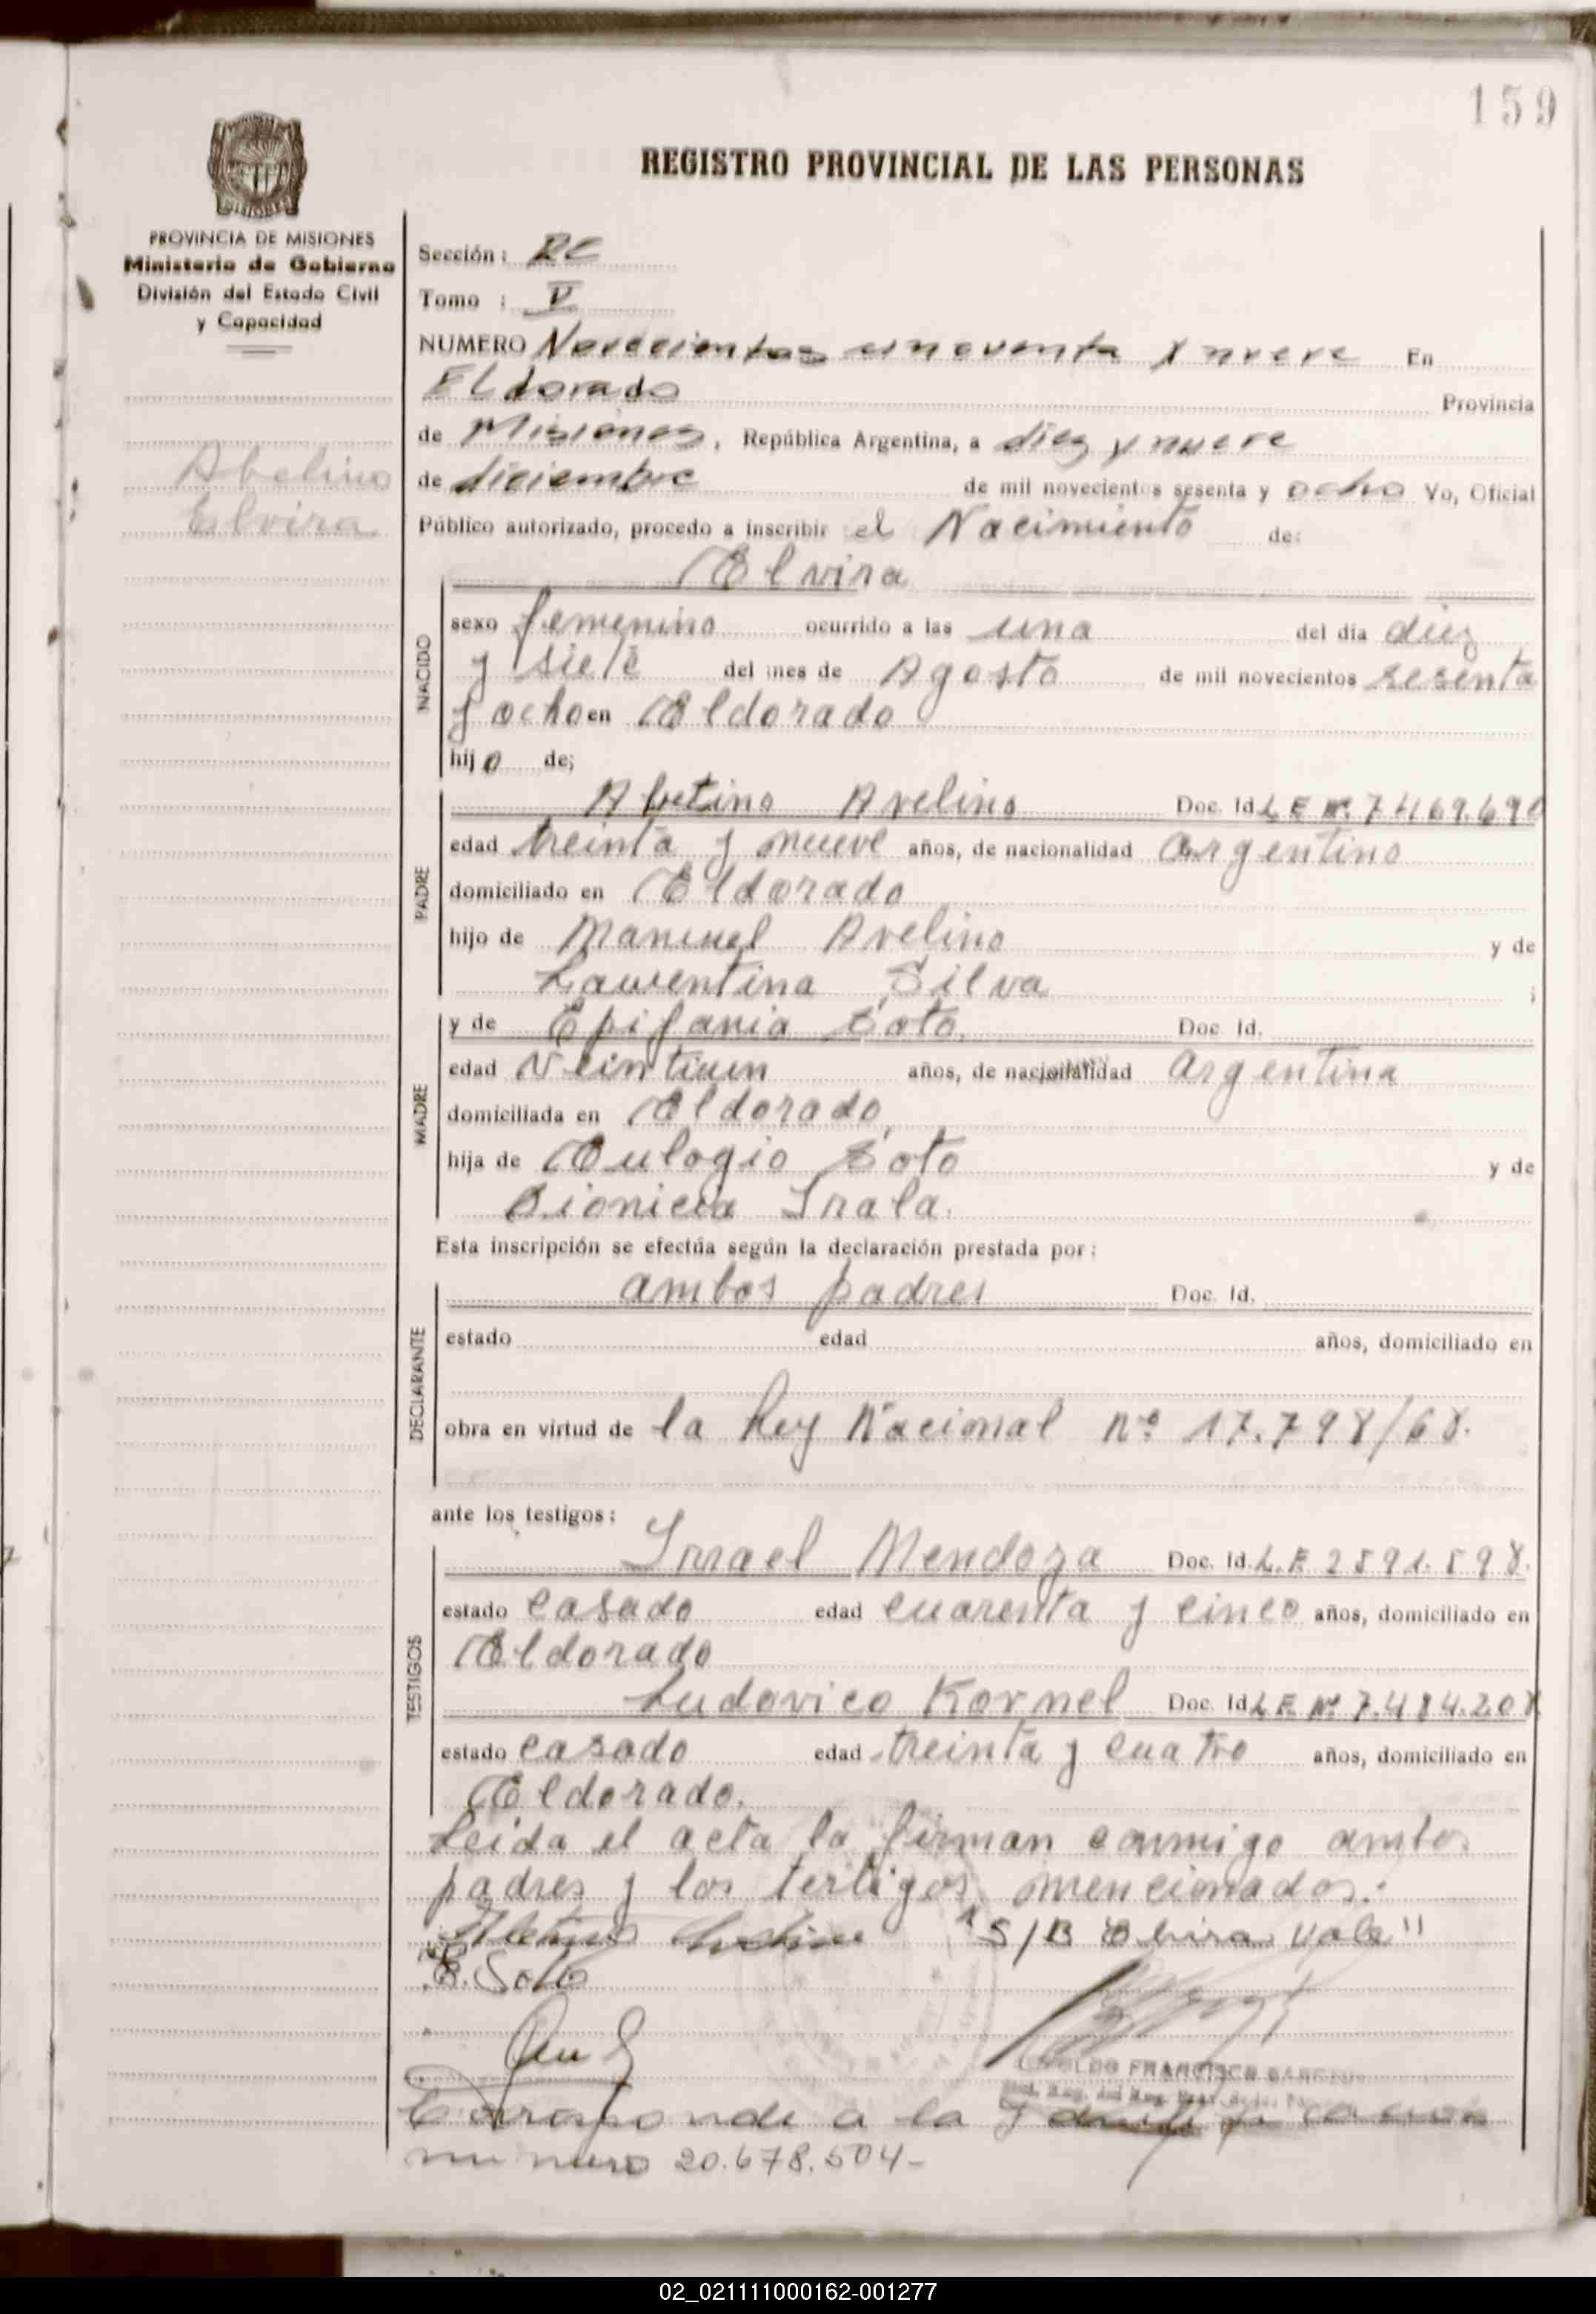 159
REGISTRO PROVINCIAL DE LAS PERSONAS
MISIONES
PROVINCIA DE MISIONES
Ministerio de Gobierno
División del Estado Civil
y Capacidad
Abelino
Elvira
Sección: RC
Tomo : V
NUMERO Novecientos cincuenta y nueve En
Eldorado Provincia
de Misiones, República Argentina, a diez y nueve
de diciembre de mil novecientos sesenta y ocho Yo, Oficial
Público autorizado, procedo a inscribir el Nacimiento de:
NACIDO
Elvira
sexo femenino ocurrido a las una del día diez
y siete del mes de Agosto de mil novecientos sesenta
y ocho en Eldorado
hijo de;
PADRE
Avelino Doc. Id. L E Nº 7469.690
edad treinta y nueve años, de nacionalidad argentino
domiciliado en Eldorado
hijo de Manuel Avelino y de
Laurentina Silva ;
MADRE
y de Epifania Soto. Doc. Id.
edad veintiun años, de nacionalidad argentina
domiciliada en Eldorado,
hija de Eulogio Soto y de
Dionicia Irala.
Esta inscripción se efectúa según la declaración prestada por:
DECLARANTE
ambos padres Doc. Id.
estado edad años, domiciliado en
obra en virtud de la Ley Nacional nº 17.798/68.
ante los testigos:
TESTIGOS
Israel Mendoza Doc. Id. L.E 2591.598.
estado casado edad cuarenta y cinco años, domiciliado en
Eldorado
Ludovico Kornel Doc. Id L E Nº 7.484.208
estado casado edad treinta y cuatro años, domiciliado en
Eldorado.
Leida el acta la firman conmigo ambos
padres y los testigos mencionados.
"S/B Elvira Vale"
E. Soto
FRANCISCO
Corresponde a la Identificacion
numero 20.678.504-
02_021111000162-001277